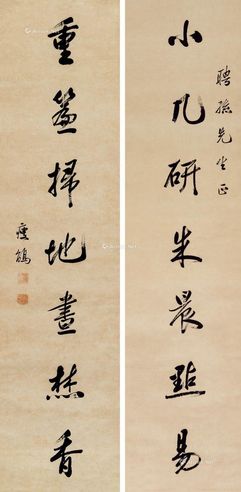 聘孫先生正
小几研朱晨點易
重簾掃地晝焚香
瘦